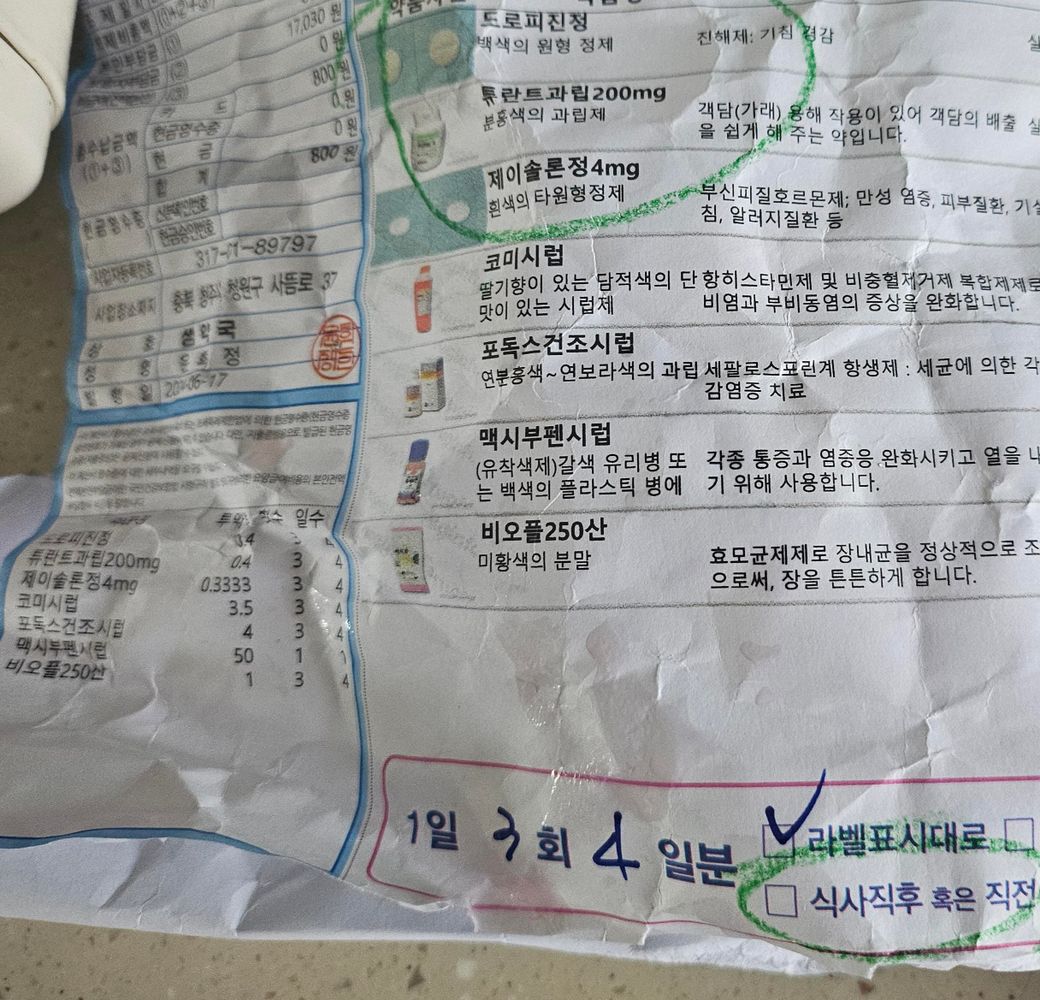 17,030 원
0 원
800 원
0 원
현금영수증
0 원
총수납금액
(①+③)
현 금
800 원
합 계
현금영수증
신분확인번호
현금승인번호
사업자등록번호
317-11-89797
사업장소재지
충북 청주시 청원구 사뜸로 37
약국
정
일수
도로피진정
튜란트과립200mg 0.4 3 4
제이솔론정4mg 0.3333 3 4
코미시럽 3.5 3 4
포독스건조시럽 4 3 4
맥시부펜시럽 50 1 1
비오플250산 1 3 4
도로피진정
백색의 원형 정제
진해제: 기침 경감
튜란트과립200mg
분홍색의 과립제
객담(가래) 용해 작용이 있어 객담의 배출
을 쉽게 해 주는 약입니다.
제이솔론정4mg
흰색의 타원형정제
부신피질호르몬제; 만성 염증, 피부질환, 기
침, 알러지질환 등
코미시럽
딸기향이 있는 담적색의 단
맛이 있는 시럽제
항히스타민제 및 비충혈제거제 복합제제로
비염과 부비동염의 증상을 완화합니다.
포독스건조시럽
연분홍색~연보라색의 과립
세팔로스포린계 항생제 : 세균에 의한 각
감염증 치료
맥시부펜시럽
(유착색제)갈색 유리병 또
는 백색의 플라스틱 병에
각종 통증과 염증을 완화시키고 열을 내
기 위해 사용합니다.
비오플250산
미황색의 분말
효모균제제로 장내균을 정상적으로 조
으로써, 장을 튼튼하게 합니다.
1일 3회 4일분
라벨표시대로
식사직후 혹은 직전